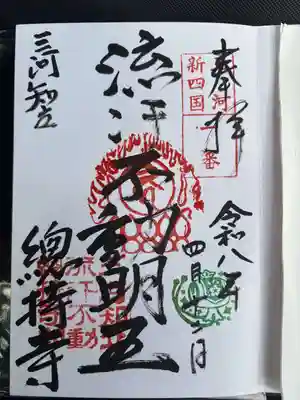 奉拝
三河新四国
一番
令和八年
四月十二日
流汗不動明王
流汗不動
三河知立
總持寺